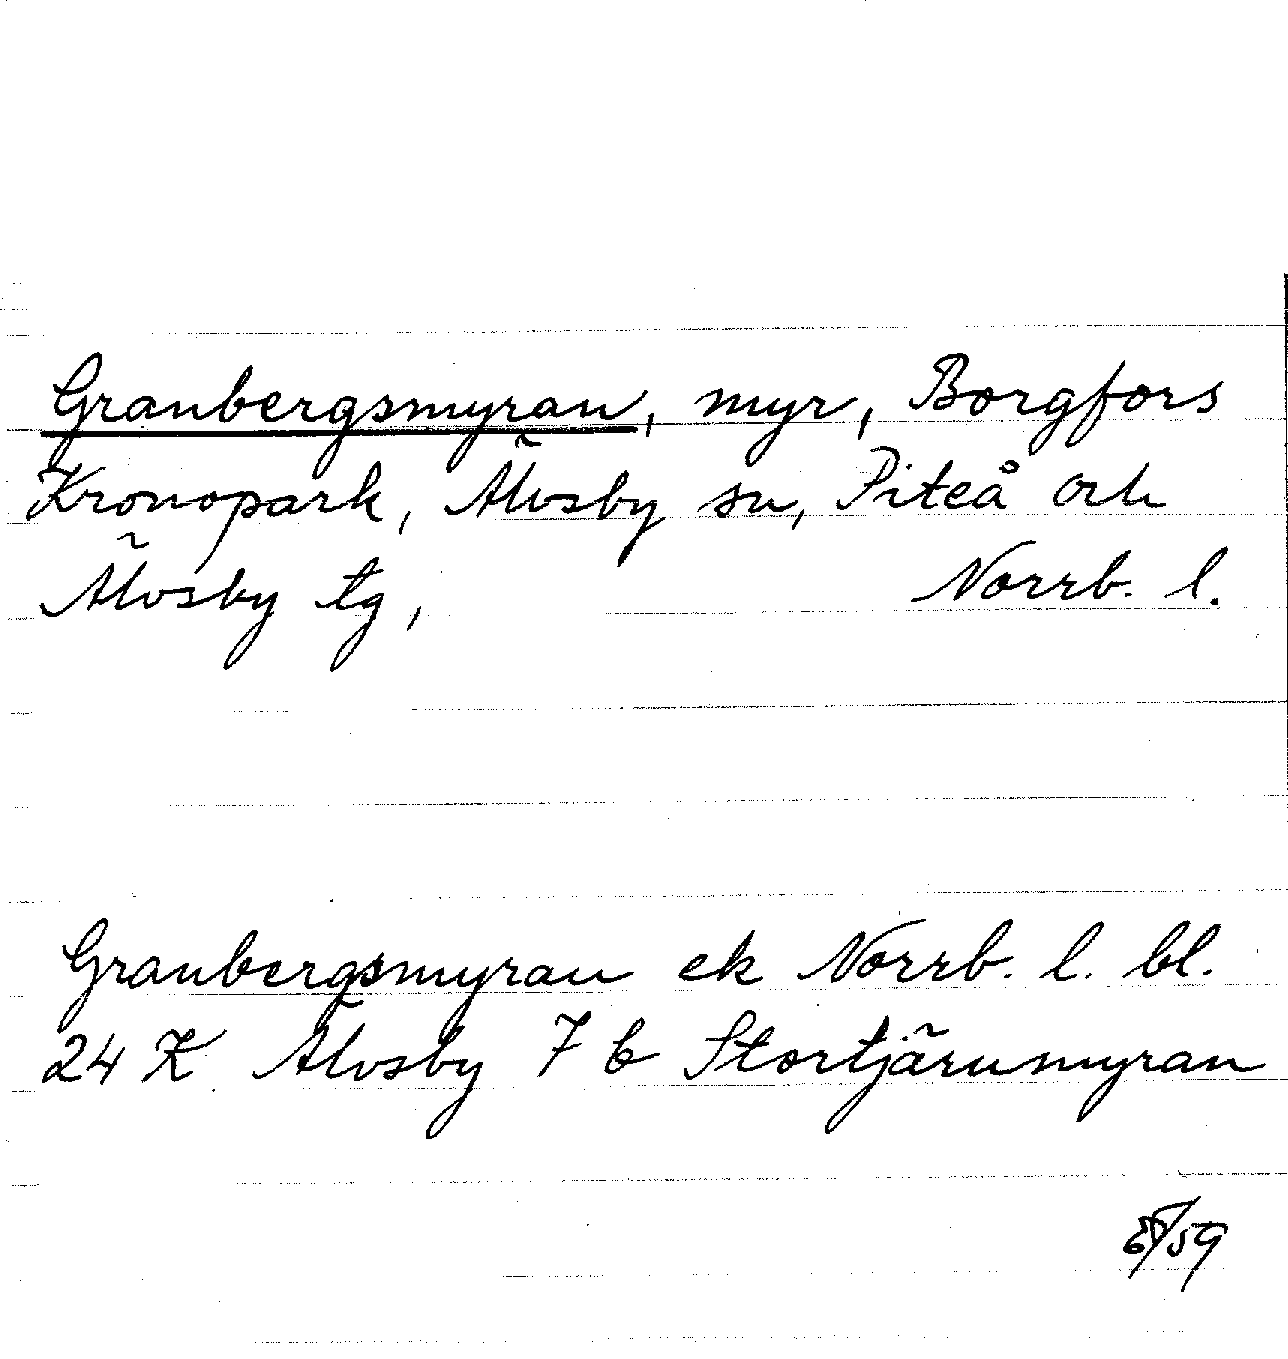 Granbergsmyran, myr, Borgfors
Kronopark, Älvsby sn, Piteå och
Älvsby tg, Norrb. l.
Granbergsmyran ek Norrb. l. bl.
24 K Älvsby 7 b Stortjärnmyran